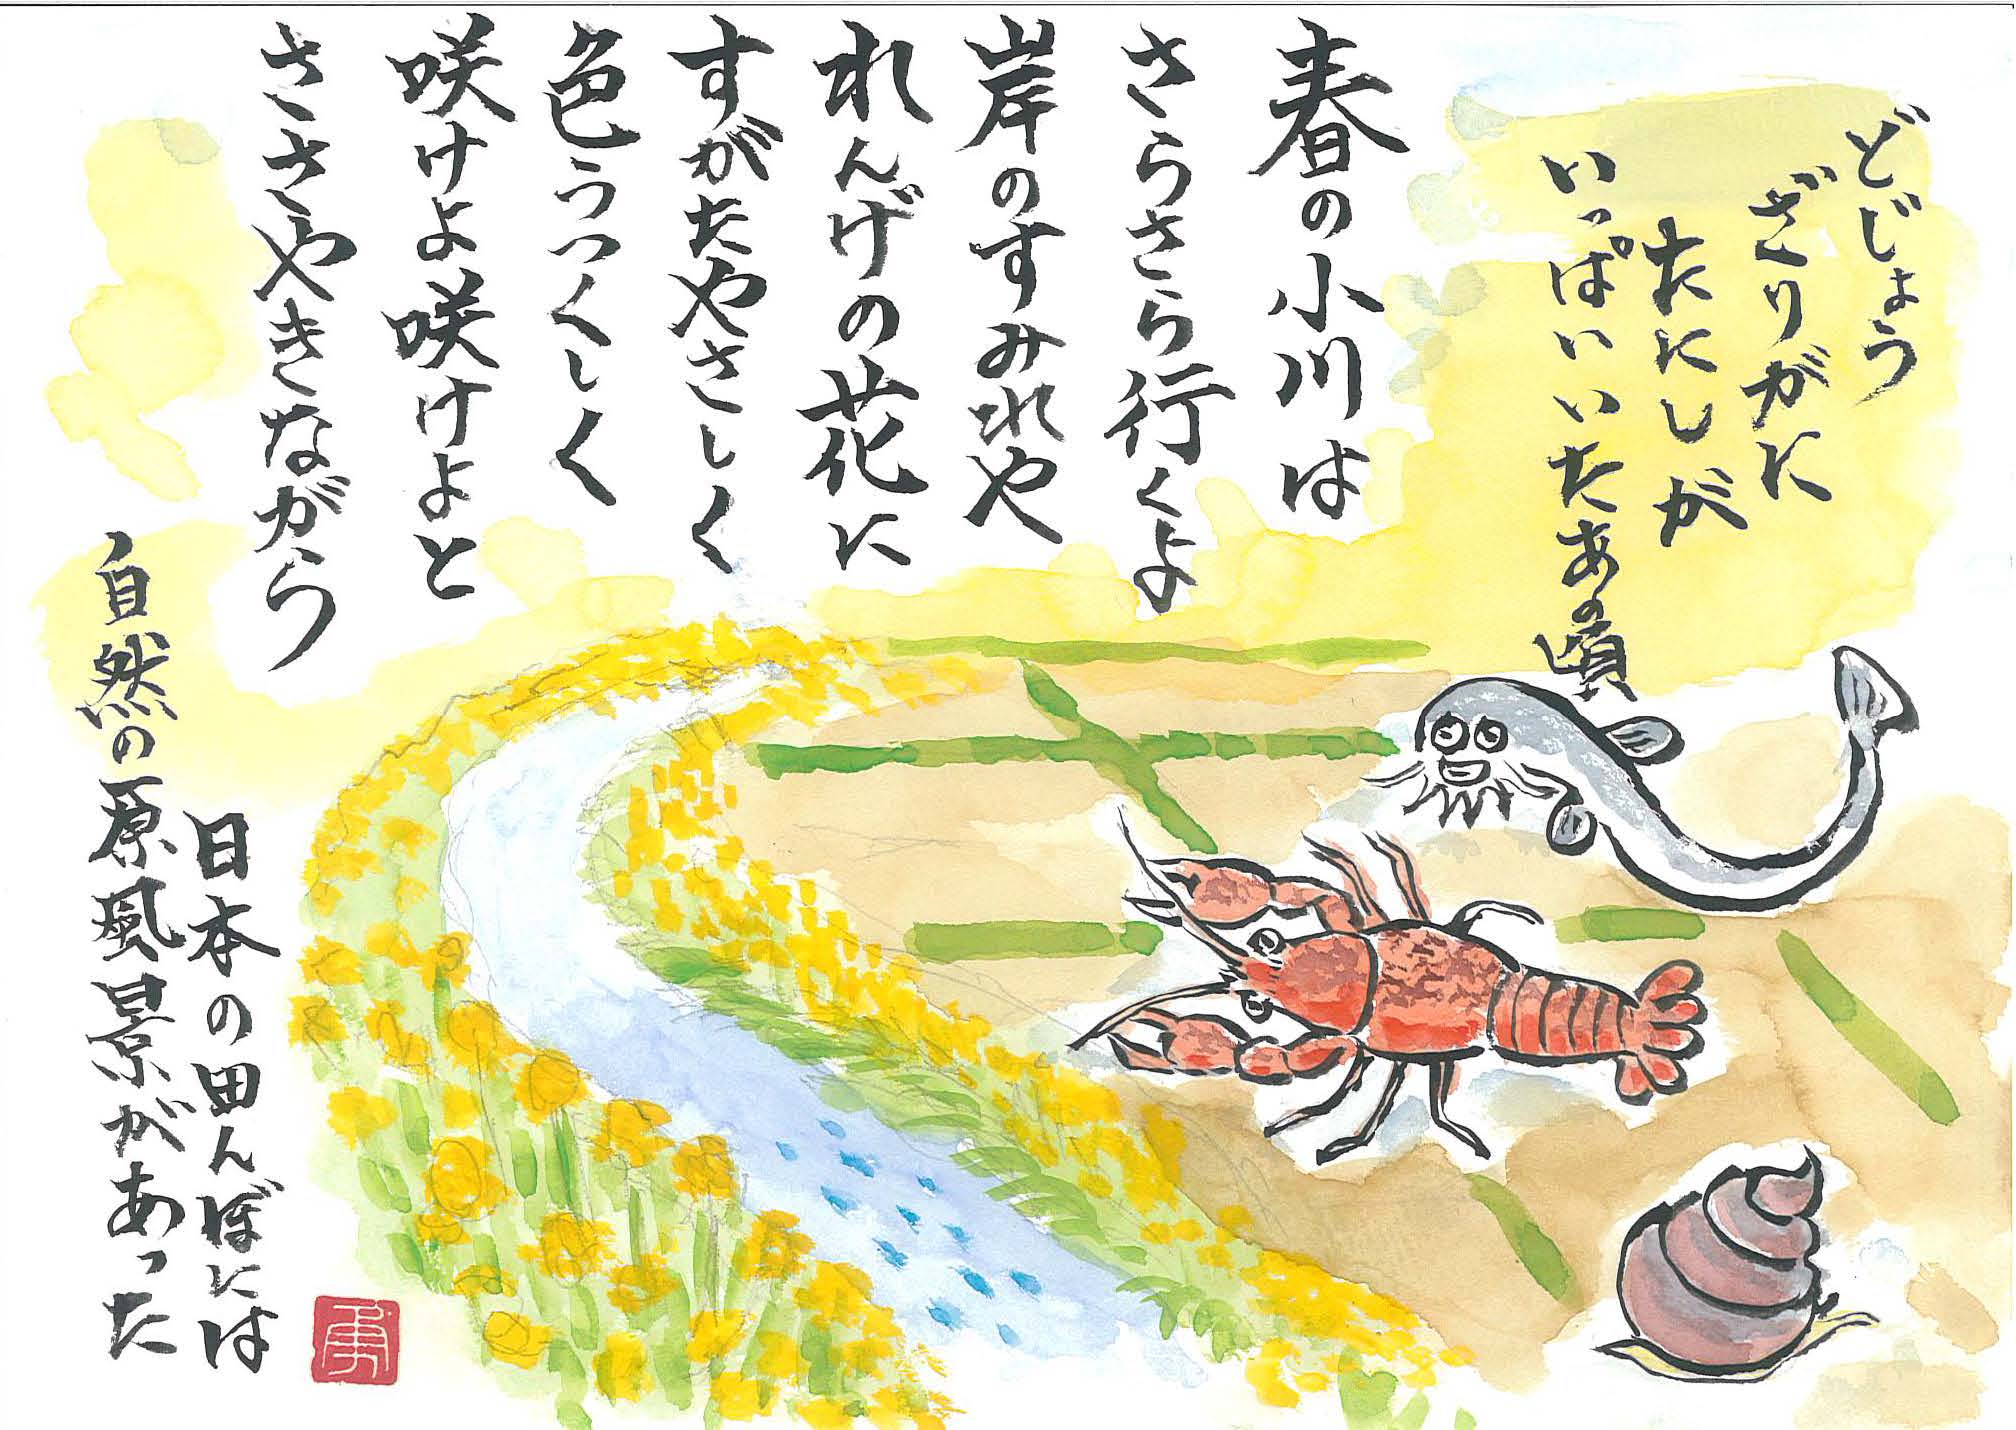 どじょう
ざりがに
たにしが
いっぱいいたあの頃
春の小川は
さらさら行くよ
岸のすみれや
れんげの花に
すがたやさしく
色うつくしく
咲けよ咲けよと
ささやきながら
日本の田んぼには
自然の原風景があった